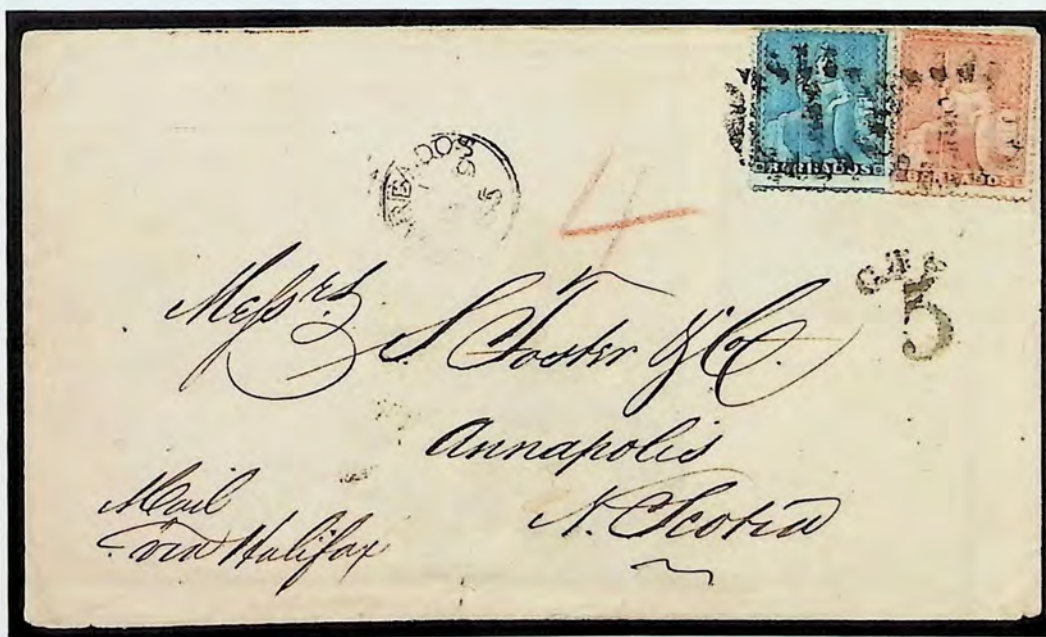 BARBADOS BARBADOS
BARBADOS
4
5
Messrs
S. Foster & Co.
Annapolis
N. Scotia
Mail
via Halifax